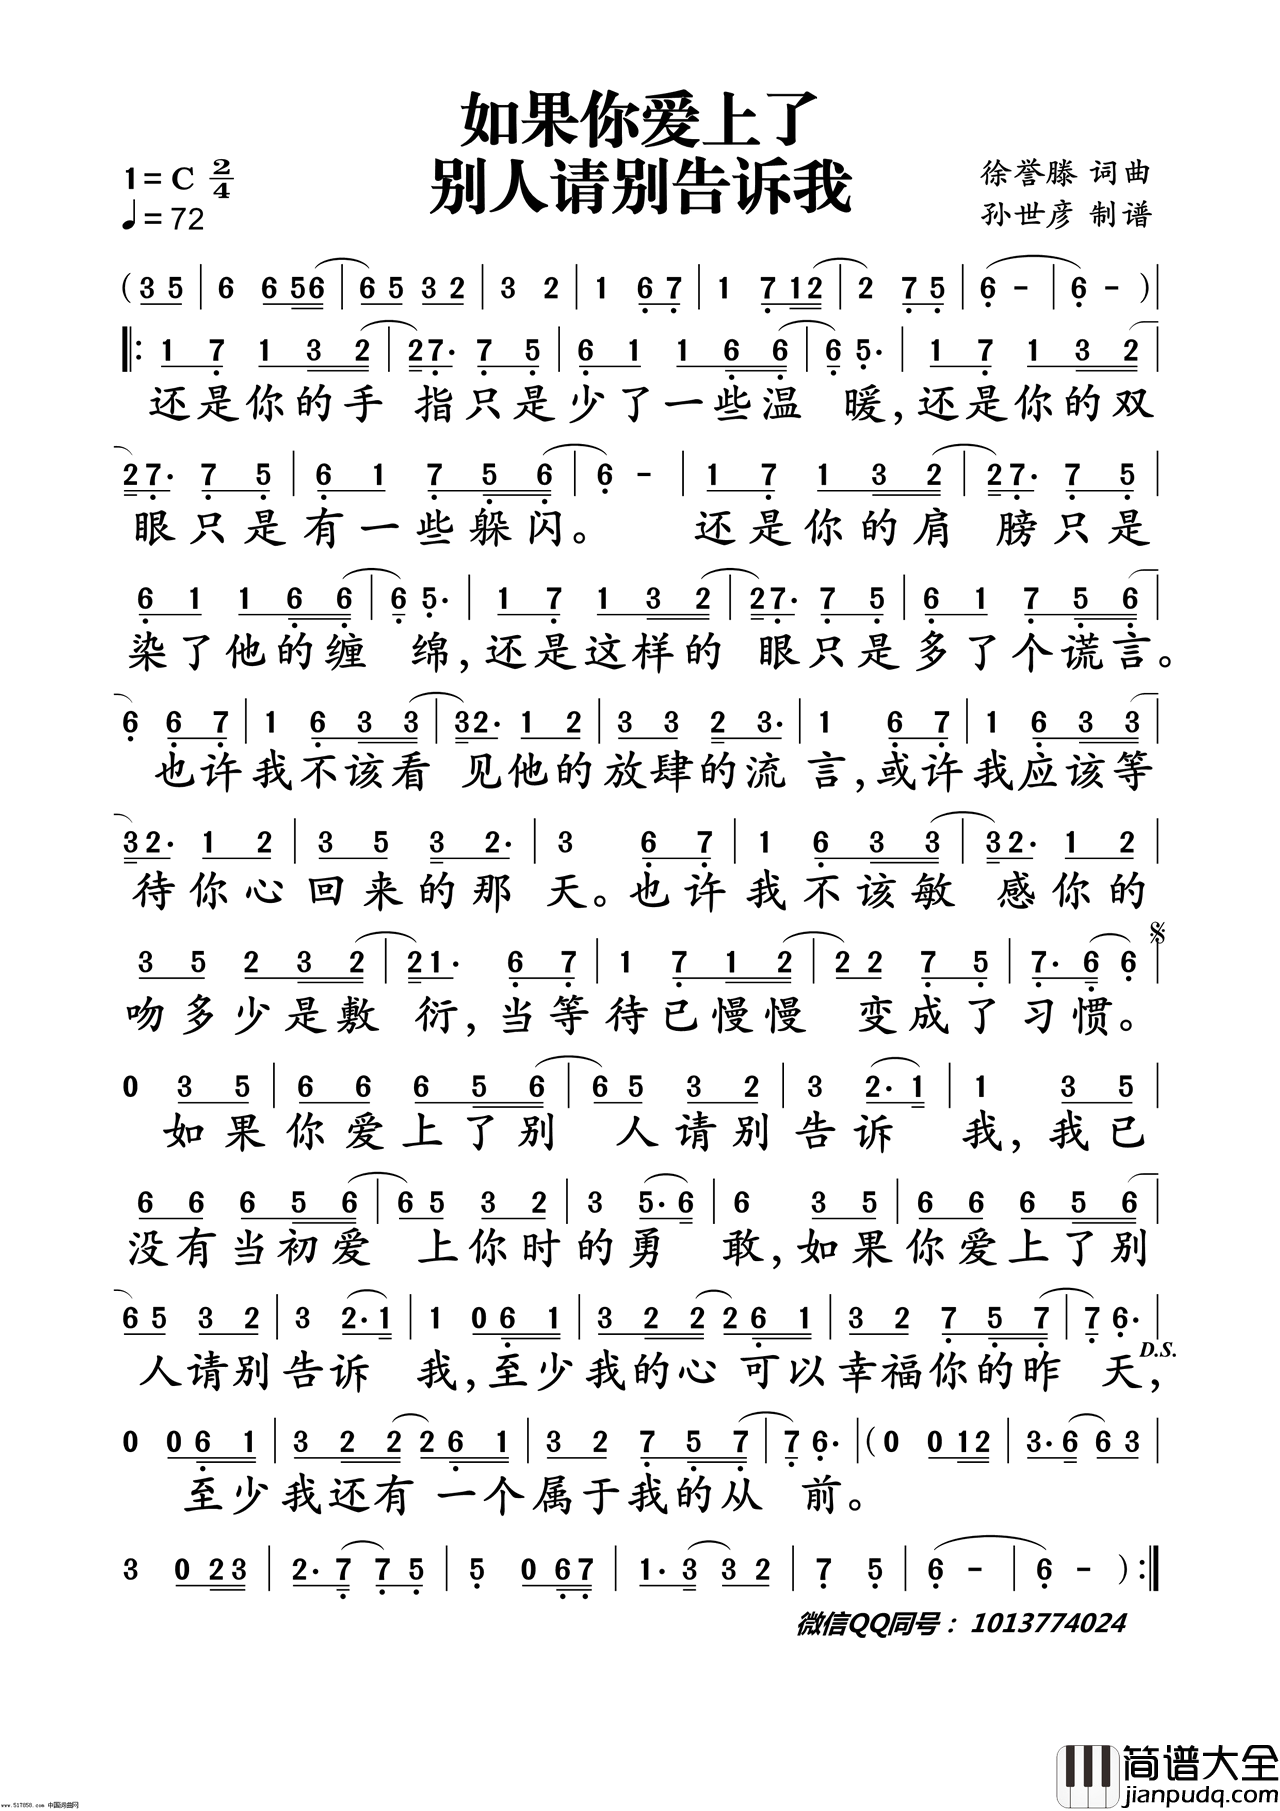 如果你爱上了
别人请别告诉我
1=C 2/4
♩=72
徐誉滕 词曲
孙世彦 制谱
(3 5 | 6 6 56 | 6 5 3 2 | 3 2 | 1 6 7 | 1 7 12 | 2 7 5 | 6 - | 6 - )|
‖: 1 7 1 3 2 | 27· 7 5 | 6 1 1 6 6 | 6 5· | 1 7 1 3 2 |
还是你的手 指只是少了一些温 暖,还是你的双
27· 7 5 | 6 1 7 5 6 | 6 - | 1 7 1 3 2 | 27· 7 5 |
眼只是有一些躲闪。 还是你的肩 膀只是
6 1 1 6 6 | 6 5· | 1 7 1 3 2 | 27· 7 5 | 6 1 7 5 6 |
染了他的缠 绵,还是这样的 眼只是多了个谎言。
6 6 7 | 1 6 3 3 | 32· 1 2 | 3 3 2 3· | 1 6 7 | 1 6 3 3 |
也许我不该看 见他的放肆的流 言,或许我应该等
32· 1 2 | 3 5 3 2· | 3 6 7 | 1 6 3 3 | 32· 1 2 |
待你心回来的那 天。也许我不该敏 感你的
3 5 2 3 2 | 21· 6 7 | 1 7 1 2 | 2 2 7 5 | 7· 6 6 |
吻多少是敷 衍,当等待已慢慢 变成了习惯。
0 3 5 | 6 6 6 5 6 | 6 5 3 2 | 3 2· 1 | 1 3 5 |
如果你爱上了别 人请别告诉 我,我已
6 6 6 5 6 | 6 5 3 2 | 3 5· 6 | 6 3 5 | 6 6 6 5 6 |
没有当初爱 上你时的勇 敢,如果你爱上了别
6 5 3 2 | 3 2· 1 | 1 0 6 1 | 3 2 2 2 6 1 | 3 2 7 5 7 | 7 6· |
D.S.
人请别告诉 我,至少我的心 可以幸福你的昨 天,
0 0 6 1 | 3 2 2 2 6 1 | 3 2 7 5 7 | 7 6· |(0 0 12 | 3· 6 6 3 |
至少我还有 一个属于我的从 前。
3 0 2 3 | 2· 7 7 5 | 5 0 6 7 | 1· 3 3 2 | 7 5 | 6 - | 6 - ):‖
微信QQ同号：1013774024
简谱大全
jianpudq.com
www.517858.com 中国词曲网